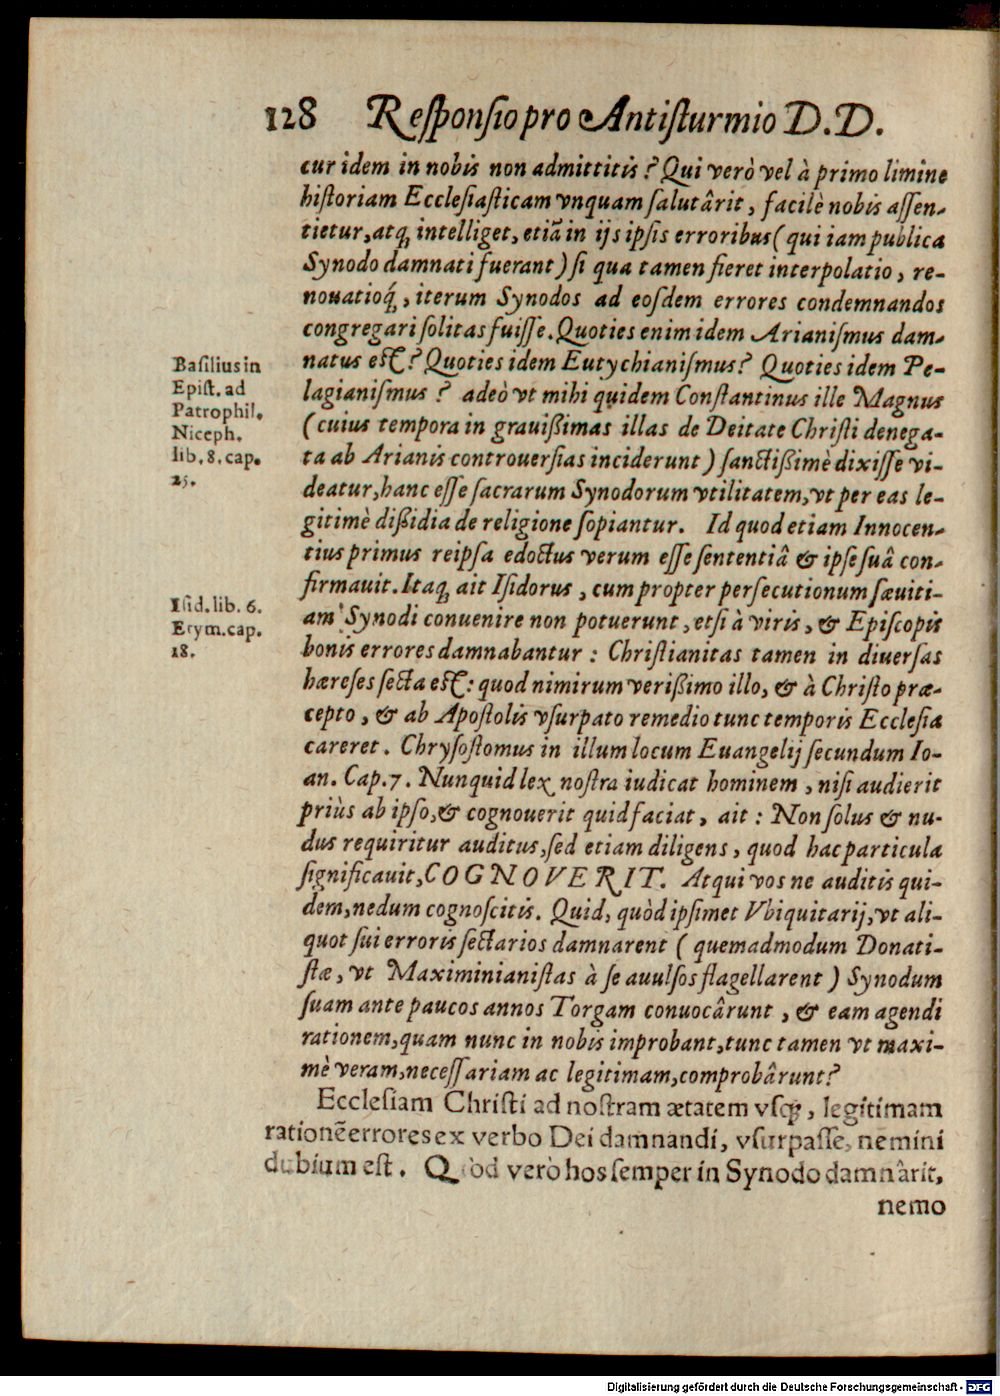 128 Responsio pro Antisturmio D. D.
cur idem in nobis non admittitis? Qui verò vel à primo limine
historiam Ecclesiasticam vnquam salutârit, facilè nobis assen-
tietur, atq́; intelliget, etiã in ijs ipsis erroribus (qui iam publica
Synodo damnati fuerant) si qua tamen fieret interpolatio, re-
nouatioq́;, iterum Synodos ad eosdem errores condemnandos
congregari solitas fuisse. Quoties enim idem Arianismus dam-
natus est? Quoties idem Eutychianismus? Quoties idem Pe-
lagianismus? adeò vt mihi quidem Constantinus ille Magnus
(cuius tempora in grauißimas illas de Deitate Christi denega-
ta ab Arianis controuersias inciderunt) sanctißimè dixisse vi-
deatur, hanc esse sacrarum Synodorum vtilitatem, vt per eas le-
gitimè dißidia de religione sopiantur. Id quod etiam Innocen-
tius primus reipsa edoctus verum esse sententiâ & ipse suâ con-
firmauit. Itaq; ait Isidorus, cum propter persecutionum sæuiti-
am Synodi conuenire non potuerunt, etsi à viris, & Episcopis
bonis errores damnabantur: Christianitas tamen in diuersas
hæreses secta est: quod nimirum verißimo illo, & à Christo præ-
cepto, & ab Apostolis vsurpato remedio tunc temporis Ecclesia
careret. Chrysostomus in illum locum Euangelij secundum Io-
an. Cap. 7. Nunquid lex nostra iudicat hominem, nisi audierit
priùs ab ipso, & cognouerit quid faciat, ait: Non solus & nu-
dus requiritur auditus, sed etiam diligens, quod hac particula
significauit, COGNOVERIT. Atqui vos ne auditis qui-
dem, nedum cognoscitis. Quid, quòd ipsimet Vbiquitarij, vt ali-
quot sui erroris sectarios damnarent (quemadmodum Donati-
stæ, vt Maximinianistas à se auulsos flagellarent) Synodum
suam ante paucos annos Torgam conuocârunt, & eam agendi
rationem, quam nunc in nobis improbant, tunc tamen vt maxi-
mè veram, necessariam ac legitimam, comprobârunt?
Ecclesiam Christi ad nostram ætatem vsq;, legitimam
rationẽ errores ex verbo Dei damnandi, vsurpasse, nemini
dubium est. Quòd verò hos semper in Synodo damnârit,
nemo
Basilius in
Epist. ad
Patrophil.
Niceph.
lib. 8. cap.
25.
Isid. lib. 6.
Etym. cap.
18.
Digitalisierung gefördert durch die Deutsche Forschungsgemeinschaft - DFG